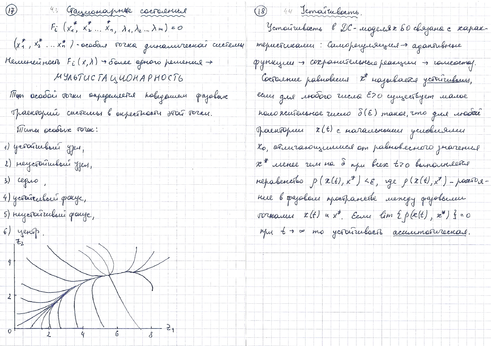 17 Стационарные состояния
Fᵢ (x₁*, x₂* ... xₙ*, λ₁, λ₂ ... λₘ) = 0
(x₁*, x₂* ... xₙ*) - особая точка динамической системы
Нелинейность Fᵢ(x,λ) → более одного решения →
МУЛЬТИСТАЦИОНАРНОСТЬ
Тип особой точки определяется поведением фазовых
траекторий системы в окрестности этой точки.
Типы особых точек:
1) устойчивый узел,
2) неустойчивый узел,
3) седло,
4) устойчивый фокус,
5) неустойчивый фокус,
6) центр.
z₂
4
2
0
2
4
6
8
z₁
18 Устойчивость.
Устойчивость в ДС-моделях БО связана с харак-
теристиками: Саморегуляция → адаптивные
функции → сохранительные реакции → гомеостаз.
Состояние равновесия x* называется устойчивым,
если для любого числа ε>0 существует малое
положительное число δ(ε) такое, что для любой
траектории x(t) с начальными условиями
x₀, отличающимися от равновесного значения
x* менее чем на δ при всех t>0 выполняется
неравенство ρ(x(t), x*) < ε, где ρ(x(t), x*) - расстоя-
ние в фазовом пространстве между фазовыми
точками x(t) и x*. Если lim {ρ(x(t), x*)} = 0
при t → ∞ то устойчивость асимптотическая.